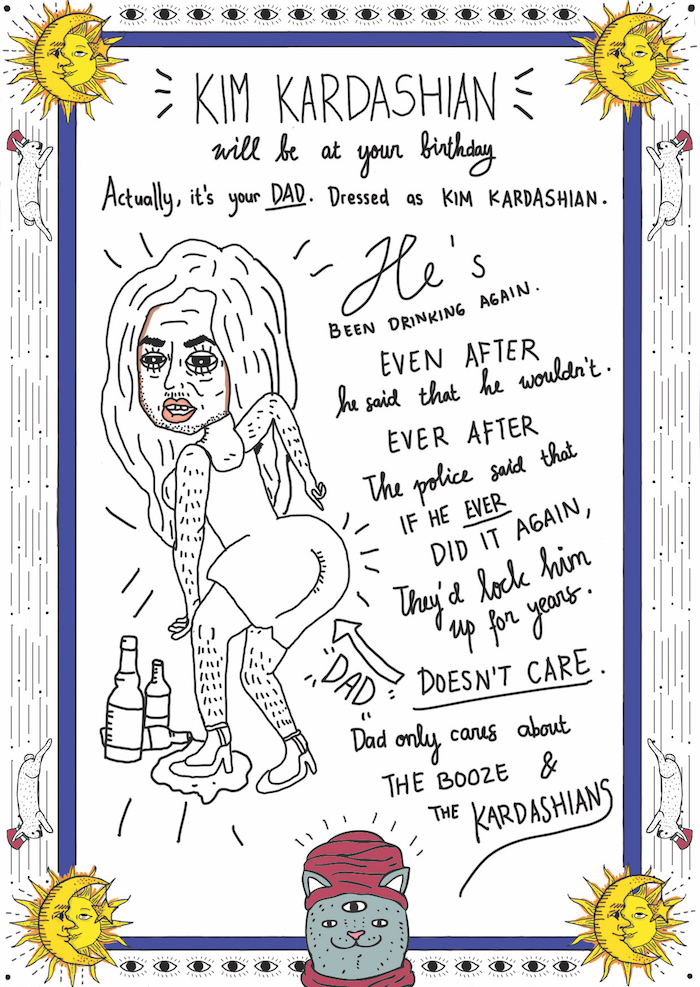 KIM KARDASHIAN
will be at your birthday
Actually, it's your DAD. Dressed as KIM KARDASHIAN.
He's
BEEN DRINKING AGAIN.
EVEN AFTER
he said that he wouldn't.
EVER AFTER
The police said that
IF HE EVER
DID IT AGAIN,
They'd lock him
up for years.
"DAD"
DOESN'T CARE.
Dad only cares about
THE BOOZE &
THE KARDASHIANS